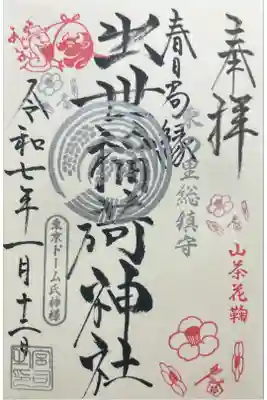 奉拝
春日局縁
東の里総鎮守
出世稲荷神社
令和七年一月十二日
東京ドーム氏神様
山茶花鞠